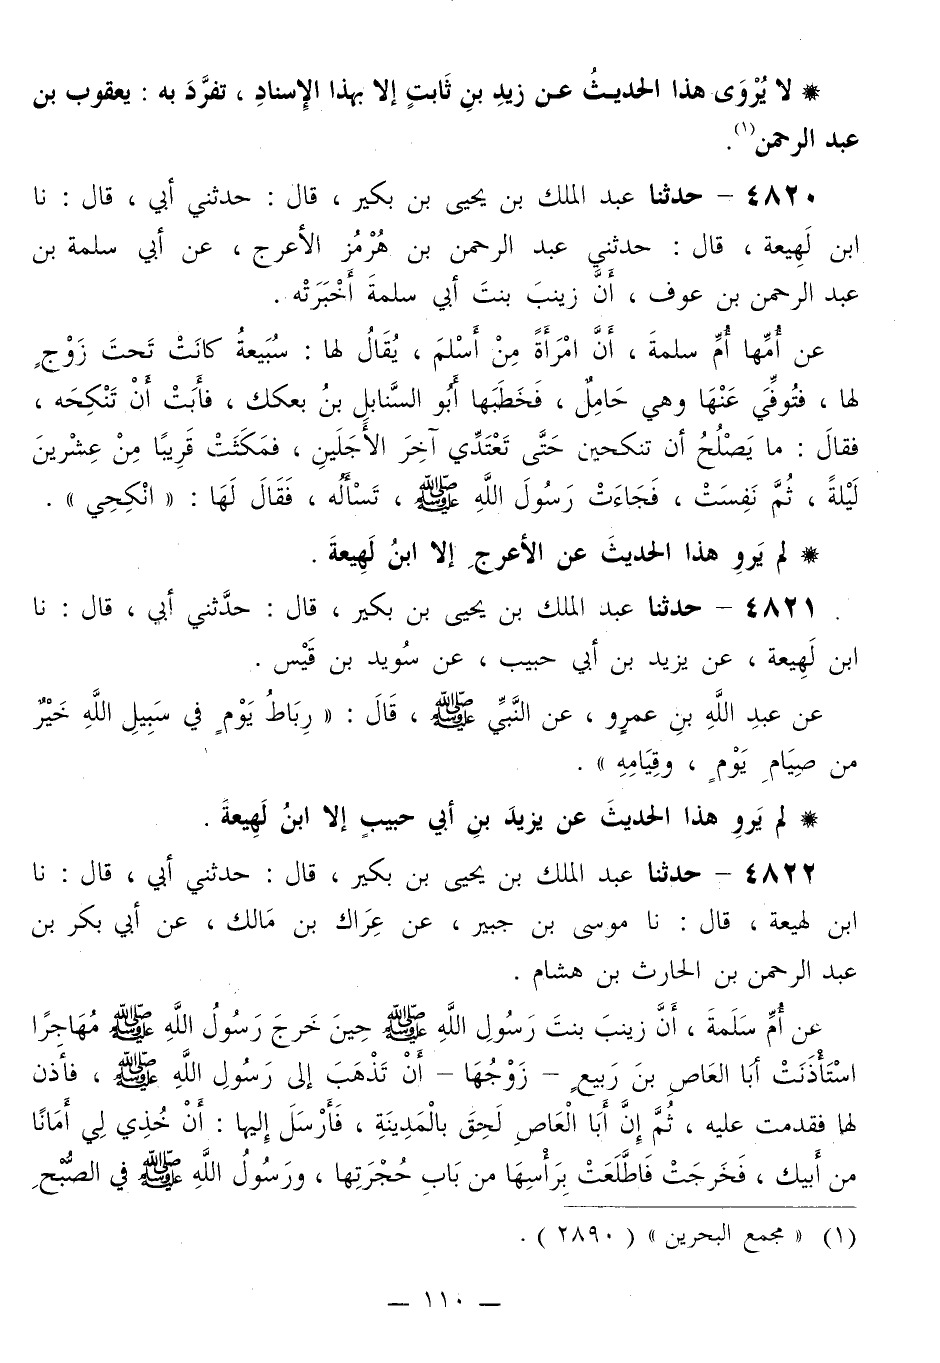 * لا يُرْوَى هذا الحديثُ عن زيدِ بنِ ثَابتٍ إلا بهذا الإسنادِ ، تفرَّدَ به : يعقوب بن
عبد الرحمن(١).
٤٨٢٠ – حدثنا عبد الملك بن يحيى بن بكير ، قال : حدثني أبي ، قال : نا
ابن لَهِيعة ، قال : حدثني عبد الرحمن بن هُرْمُز الأعرج ، عن أبي سلمة بن
عبد الرحمن بن عوف ، أَنَّ زينبَ بنتَ أبي سلمةَ أَخْبَرَتْه .
عن أُمِّها أُمِّ سلمةَ ، أَنَّ امْرَأَةً مِنْ أَسْلمَ ، يُقَالُ لها : سُبَيعةُ كانَتْ تَحتَ زَوْجٍ
لها ، فتُوفِّيَ عَنْهَا وهي حَامِلٌ ، فَخَطَبَها أَبُو السَّنابلِ بنُ بعكك ، فأَبَتْ أَنْ تَنْكِحَه ،
فقالَ : ما يَصْلُحُ أن تنكحين حَتَّى تَعْتَدِّي آخِرَ الأَجَلَينِ ، فمَكَثَتْ قَرِيبًا مِنْ عِشْرينَ
لَيْلةً ، ثُمَّ نَفِسَتْ ، فَجَاءَتْ رَسُولَ اللَّهِ ﷺ ، تَسْأَلُه ، فَقَالَ لَهَا : « انْكِحِي » .
* لم يَروِ هذا الحديثَ عن الأعرجِ إلا ابنُ لَهِيعةَ .
٤٨٢١ – حدثنا عبد الملك بن يحيى بن بكير ، قال : حدَّثني أبي ، قال : نا
ابن لَهِيعة ، عن يزيد بن أبي حبيب ، عن سُويد بن قَيْس .
عن عبدِ اللَّهِ بنِ عمرٍو ، عن النَّبيِّ ﷺ ، قَالَ : « رِبَاطُ يَوْمٍ في سَبِيلِ اللَّهِ خَيْرٌ
من صِيَامِ يَوْمٍ ، وقِيَامِهِ » .
* لم يَروِ هذا الحديثَ عن يزيدَ بنِ أبي حبيبٍ إلا ابنُ لَهِيعةَ .
٤٨٢٢ – حدثنا عبد الملك بن يحيى بن بكير ، قال : حدثني أبي ، قال : نا
ابن لهيعة ، قال : نا موسى بن جبير ، عن عِرَاك بن مَالك ، عن أبي بكر بن
عبد الرحمن بن الحارث بن هشام .
عن أُمِّ سَلَمةَ ، أَنَّ زينبَ بنتَ رَسُولِ اللَّهِ ﷺ حِينَ خَرجَ رَسُولُ اللَّهِ ﷺ مُهَاجرًا
اسْتَأْذَنَتْ أبَا العَاصِ بنَ رَبيعٍ – زَوْجُهَا – أَنْ تَذْهَبَ إلى رَسُولِ اللَّهِ ﷺ ، فأذن
لها فقدمت عليه ، ثُمَّ إنَّ أَبَا الْعَاصِ لَحِقَ بالْمَدِينَةِ ، فَأَرْسَلَ إليها : أَنْ خُذِي لِي أَمَانًا
من أَبيك ، فَخَرجَتْ فَاطَّلَعَتْ بِرَأْسِهَا من بَابِ حُجْرَتِها ، ورَسُولُ اللَّهِ ﷺ في الصُّبْحِ
(١) « مجمع البحرين » ( ٢٨٩٠ ) .
— ١١٠ —